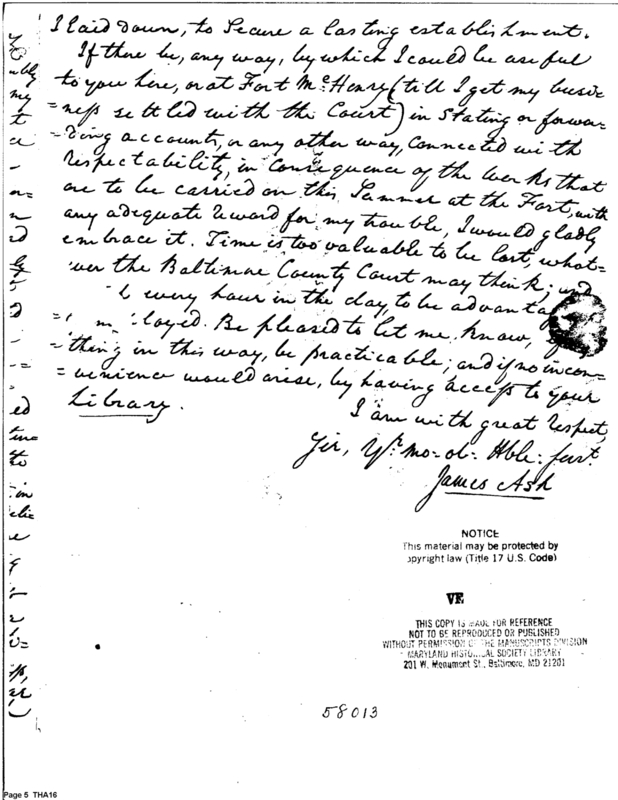 I laid down, to Secure a lasting establishment.
If there be, any way, by which I could be useful
to you here, or at Fort McHenry (till I get my busi=
=ness settled with the Court) in Stating or forwar=
=ding accounts, or any other way, connected with
respectability, in consequence of the works that
are to be carried on this Summer at the Fort, with
any adequate reward for my trouble, I would gladly
embrace it. Time is too valuable to be lost, what=
ever the Baltimore County Court may think; and
every hour in the day, to be advanta
loyed. Be pleased to let me know,
=thing in this way, be practicable; and if no incon=
=venience would arise, by having access to your
Library.
I am with great respect,
Sir, Yr. mo=ob= Hble: Servt.
James Ash
NOTICE
This material may be protected by
opyright law (Title 17 U.S. Code)
VE
THIS COPY IS MADE FOR REFERENCE
NOT TO BE REPRODUCED OR PUBLISHED
WITHOUT PERMISSION OF THE MANUSCRIPTS DIVISION
MARYLAND HISTORICAL SOCIETY LIBRARY
201 W. Monument St., Baltimore, MD 21201
58013
Page 5 THA16